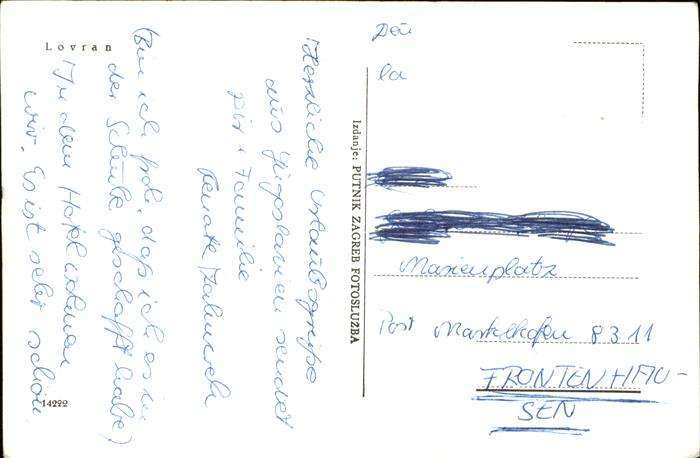 Lovran
Herzliche Urlaubsgrüße
aus Jugoslawien sendet
Dir + Familie
Renate
(Bin ich froh, daß ich es in
der Schule geschafft habe)
In dem Hotel wohnen
wir. Es ist sehr schön
14222
Izdanje: PUTNIK ZAGREB FOTOSLUŽBA
Marienplatz
Post Marklkofen 8311
FRONTENHAU-
SEN